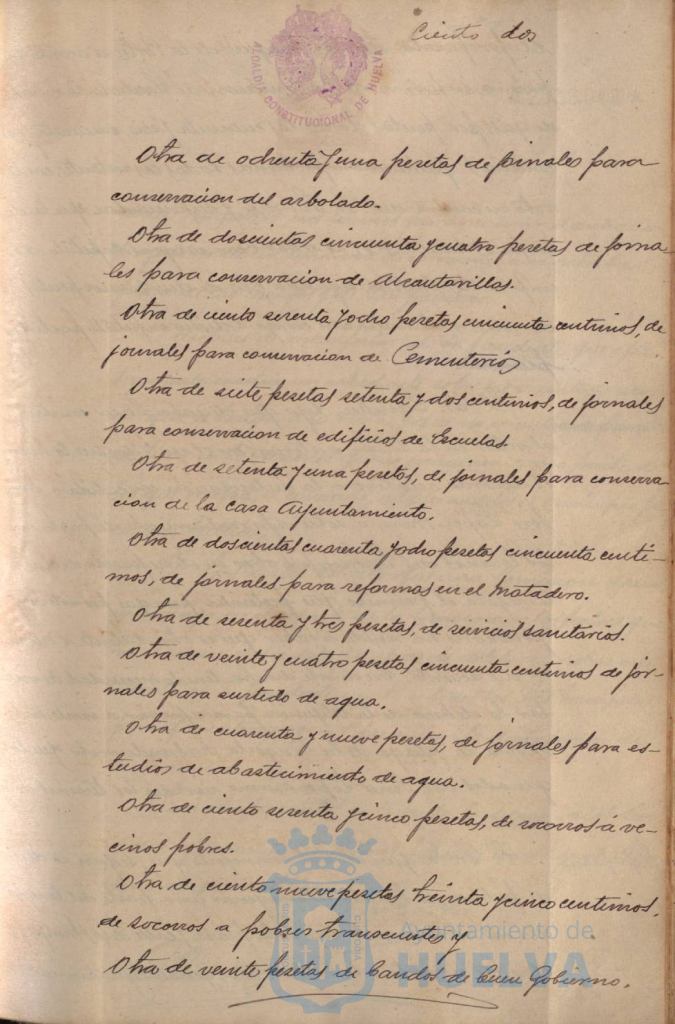 Ciento dos
ALCALDIA CONSTITUCIONAL DE HUELVA
Otra de ochenta y una pesetas de jornales para
conservacion del arbolado.
Otra de doscientas cincuenta y cuatro pesetas de jorna-
les para conservacion de Alcantarillas.
Otra de ciento sesenta y ocho pesetas cincuenta centimos, de
jornales para conservacion de Cementerios
Otra de siete pesetas setenta y dos centimos, de jornales
para conservacion de edificios de Escuelas.
Otra de setenta y una pesetas, de jornales para conserva-
cion de la casa Ayuntamiento.
Otra de doscientas cuarenta y ocho pesetas cincuenta centi-
mos, de jornales para reformas en el Matadero.
Otra de sesenta y tres pesetas, de servicios sanitarios.
Otra de veinte y cuatro pesetas cincuenta centimos de jor-
nales para surtido de agua.
Otra de cuarenta y nueve pesetas, de jornales para es-
tudios de abastecimiento de agua.
Otra de ciento sesenta y cinco pesetas, de socorros á ve-
cinos pobres.
Otra de ciento nueve pesetas treinta y cinco centimos,
de socorros a pobres transeuntes y
Otra de veinte pesetas de Bandos de Buen Gobierno.
Ayuntamiento de
HUELVA